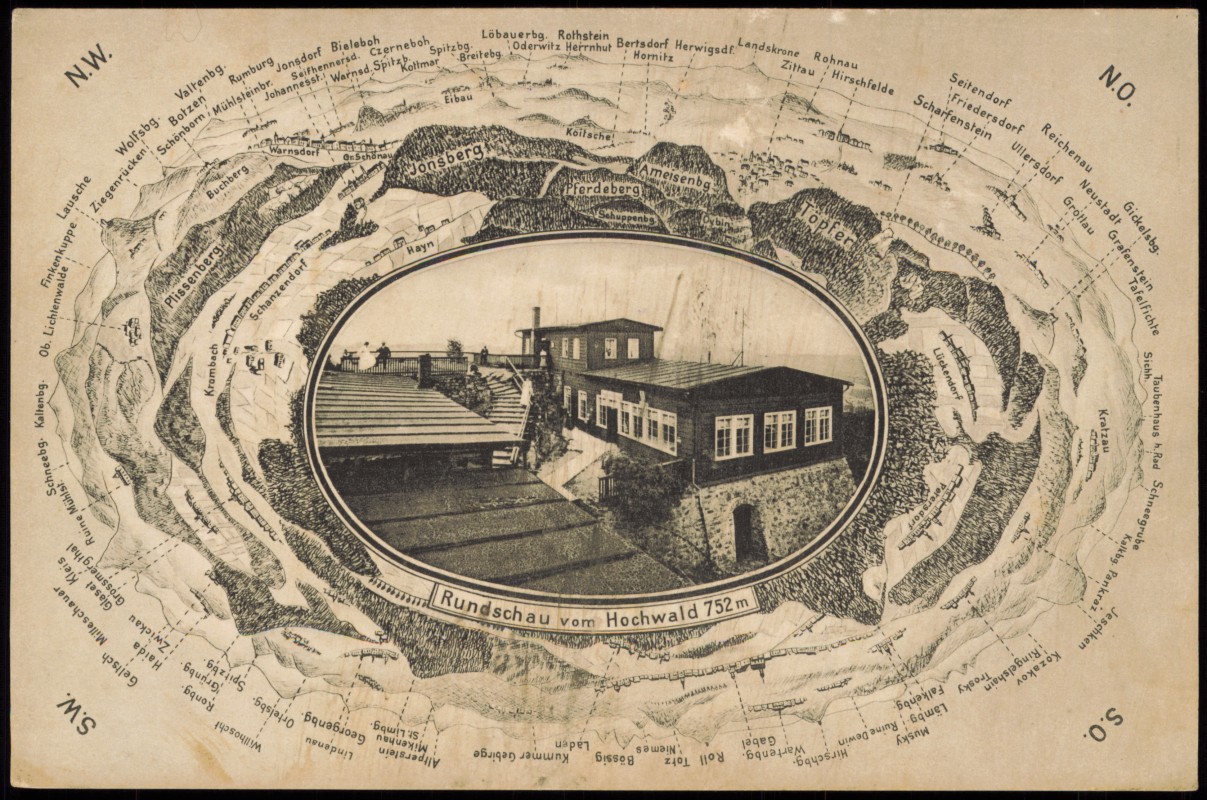 N.W.
N.O.
S.W.
S.O.
Schneebg.
Kaltenbg.
Ob. Lichtenwalde
Finkenkuppe
Lausche
Ziegenrücken
Wolfsbg.
Schönborn
Botzen
Valtenbg.
Mühlsteinbr.
Rumburg
Johannesst.
Jonsdorf
Seifhennersd.
Bieleboh
Warnsd. Spitzb.
Czerneboh
Kottmar
Spitzbg.
Breitebg.
Löbauerbg.
Oderwitz
Rothstein
Herrnhut
Bertsdorf
Hörnitz
Herwigsdf.
Landskrone
Zittau
Rohnau
Hirschfelde
Seitendorf
Friedersdorf
Scharfenstein
Ullersdorf
Reichenau
Grottau
Neustadt
Grafenstein
Gickelsbg.
Tafelfichte
Sichh.
Taubenhaus h. Rad
Kratzau
Schneegrube
Kalkbg.
Pankraz
Jeschken
Kozakov
Ringelshain
Trosky
Falkenbg.
Lämbg.
Musky
Ruine Dewin
Hirschbg.
Wartenbg.
Gabel
Roll
Totz
Niemes
Bössig
Laden
Kummer Gebirge
Altperstein
Mikenau
St. Limbg.
Georgenbg.
Lindenau
Ortelsbg.
Willhoscht
Spitzbg.
Grünbg.
Ronbg.
Haida
Zwickau
Geltsch
Milleschauer
Grossmergthal
Glasel
Kleis
Ruine Mühlst.
Warnsdorf
Gr. Schönau
Eibau
Koitsche
Buchberg
Jonsberg
Pferdeberg
Ameisenbg.
Schuppenbg.
Oybin
Töpfer
Plissenberg
Schanzendorf
Hayn
Krombach
Lückendorf
Petersdorf
Rundschau vom Hochwald 752 m